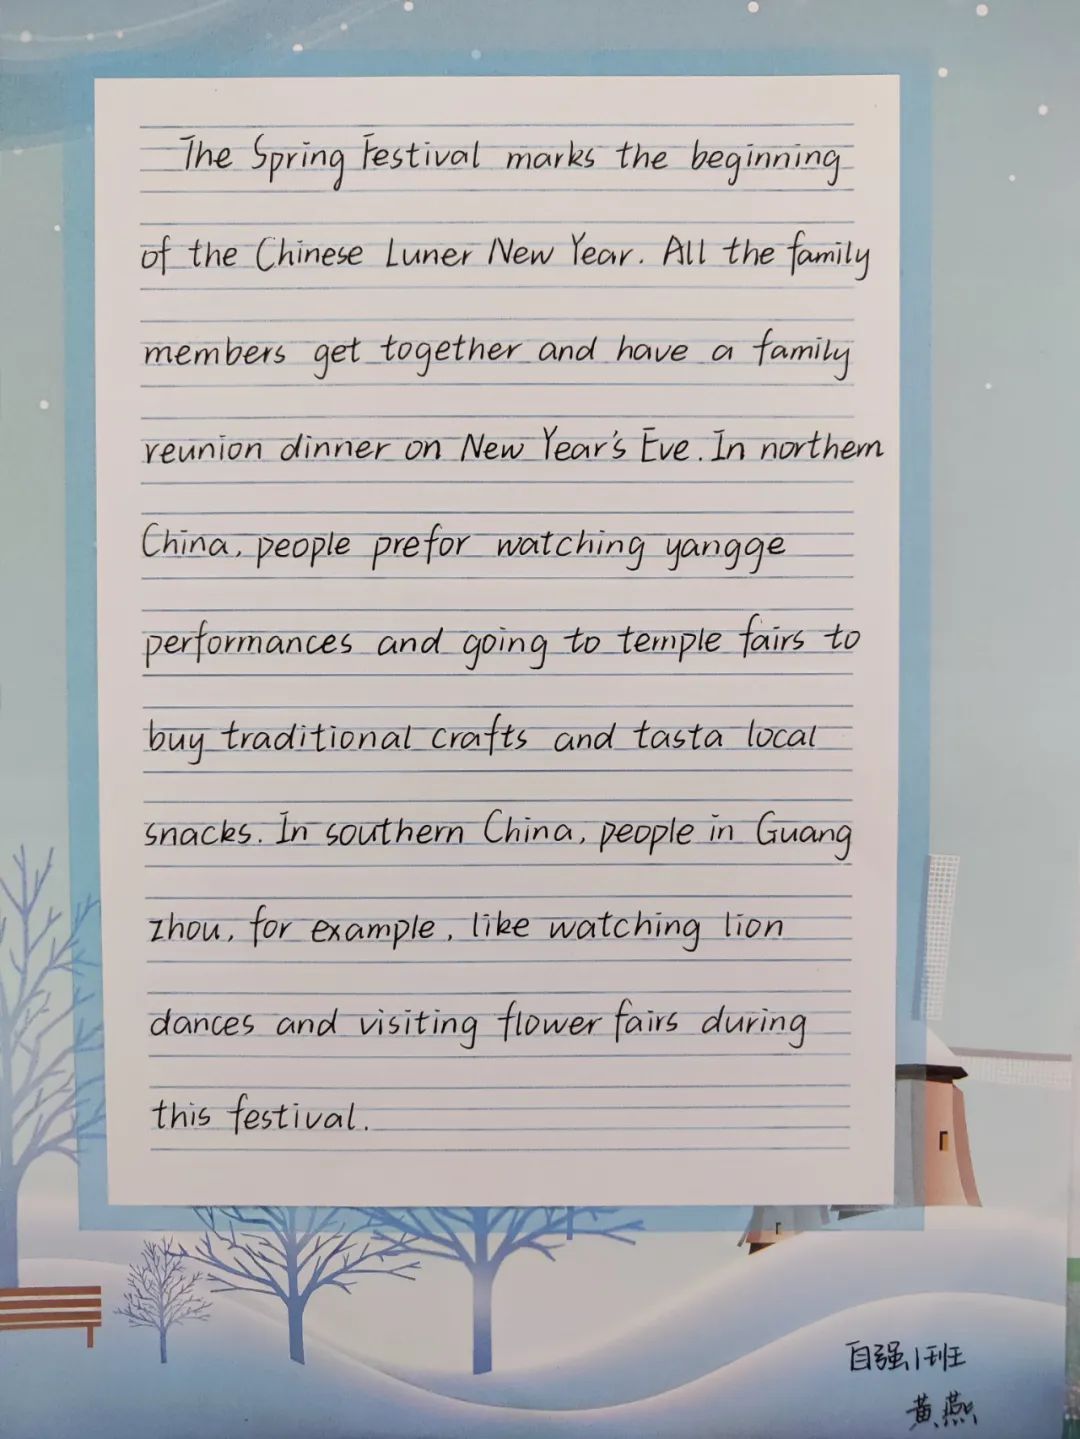 The Spring Festival marks the beginning
of the Chinese Luner New Year. All the family
members get together and have a family
reunion dinner on New Year's Eve. In northern
China, people prefor watching yangge
performances and going to temple fairs to
buy traditional crafts and tasta local
snacks. In southern China, people in Guang
zhou, for example, like watching lion
dances and visiting flower fairs during
this festival.
自强1班
黄燕